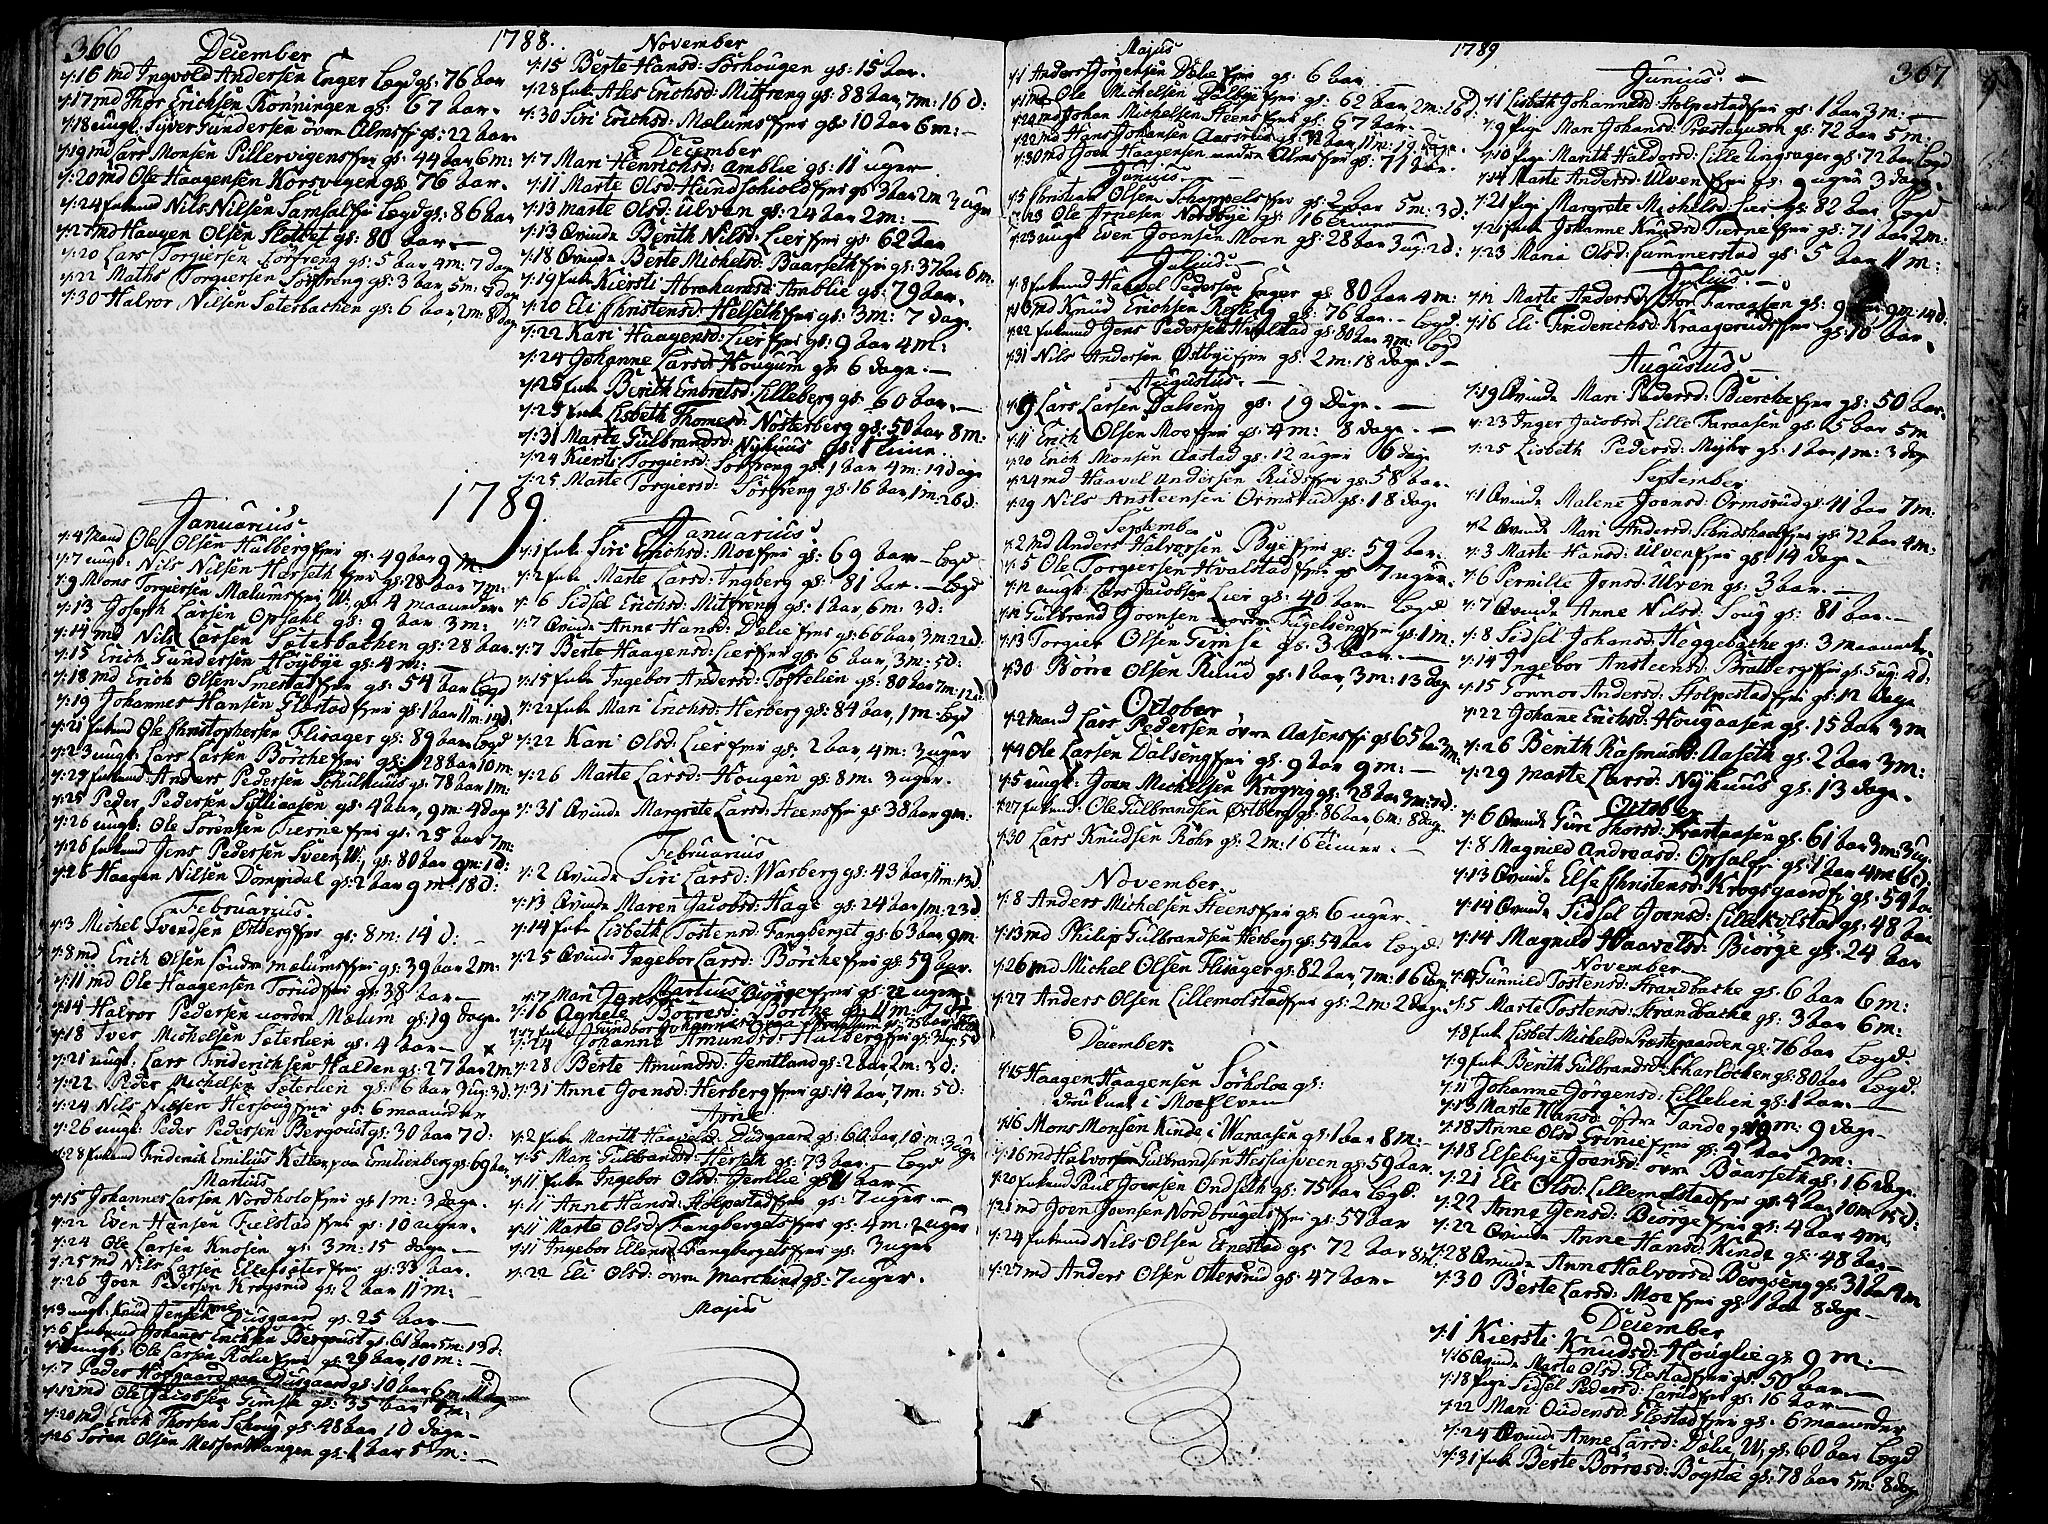 366
1788.
December
7:16 md Ingvold Andersen Enger Legd gs: 76 aar
7:17 md Thor Erichsen Konningen gs: 67 aar.
7:18 ungk: Syver Gundersen øvre Alms fri gs: 22 aar.
7:19 md Lars Monsen Pillervigens fri gs: 44 aar 6 m:
7:20 md Ole Haagensen Korsvegen gs: 76 aar.
7:24 fukmd Nils Nilsen Samsal fri Legd gs: 86 aar
7:27 md Haagen Olsen Slottet gs: 80 aar.
7:20 Lars Torgiersen Sørfreng gs: 5 aar 4 m: 7 dage
7:22 Mathis Torgiersen Sørfreng gs: 3 aar, 5 m: 7 dage
7:30 Halvor Nilsen Sæterbachen gs: 6 aar, 2 m: 8 dage
November
7:15 Berte Hansd: Sørhougen gs: 15 aar.
7:28 fuk: Ales Erichsd: Mitfreng gs: 88 aar, 7 m: 16 d:
7:30 Siri Erichsd: Mælums fri gs: 10 aar 6 m:
December
7:7 Mari Henrichsd: Amblie gs: 11 uger
7:11 Marte Olsd: Hundschiold fri gs: 3 aar 2 m 3 uger
7:13 Marte Olsd: Ulven gs: 24 aar 2 m:
7:13 Qvinde Berith Nilsd: Lier fri gs: 62 aar
7:18 Qvinde Berte Michelsd: Baarseth fri gs: 37 aar 6 m:
7:19 fuk: Kiersti Abrahamsd: Amblie gs: 79 aar.
7:20 Eli Christensd: Helseth fri gs: 3 m: 7 dage
7:22 Kari Haagensd: Lier fri gs: 9 aar 4 m:
7:24 Johanne Larsd: Hougum gs: 6 dage.
7:28 fuk: Berith Embretsd: Lilleberg gs: 60 aar.
7:29 fuk: Lisbeth Thomesd: Nosterberg gs: 50 aar 8 m:
7:31 Marte Gulbrandsd: Nyhuus gs: 1 time.
7:24 Kiersti Torgiersd: Sørfreng gs: 1 aar 4 m: 14 dage
7:25 Marte Torgiersd: Sørfreng gs: 16 aar, 1 m: 26 d:
1789.
Januarius
7:4 Mand Ole Olsen Hulberg fri gs: 49 aar 9 m:
7:7 ungk: Nils Nilsen Harseth fri gs: 28 aar 7 m:
7:9 Mons Torgiersen Mælums fri W: gs: 4 maaneder
7:13 Joseph Larsen Opsahl gs: 9 aar 3 m:
7:14 md Nils Larsen Sæterbachen gs: 28 aar.
7:15 Erich Gundersen Høybye gs: 4 m:
7:18 md Erich Olsen Smestad fri gs: 54 aar Legd
7:19 Johannes Hansen Glæstad fri gs: 1 aar 11 m: 14 d:
7:21 fukmd Ole Christophersen Flisager gs: 89 aar Legd
7:23 ungk: Lars Larsen Børche fri gs: 28 aar 10 m:
7:29 fukmd Anders Pedersen Schulhuus gs: 78 aar 1 m:
7:25 Peder Pedersen Sylliaasen gs: 4 aar, 9 m: 4 dage
7:26 ungk: Ole Sørensen Tierne fri gs: 25 aar 7 m:
7:26 fukmd Jens Pedersen Sveen W: gs: 80 aar 9 m: 1 d:
7:28 Haagen Nilsen Dompidal gs: 2 aar 9 m: 18 d:
Februarius
7:3 Michel Svendsen Østberg fri gs: 8 m: 14 d:
7:8 md Erich Olsen søndre Mælums fri gs: 39 aar 2 m:
7:11 md Ole Haagensen Torud fri gs: 38 aar
7:14 Halvor Pedersen norden Mælum gs: 19 dage.
7:18 Iver Michelsen Seterlien gs: 4 aar
7:21 ungk: Lars Friderichsen Halden gs: 27 aar 2 m
7:22 Peder Michelsen Sæterlien gs: 6 aar 3 ug: 3 d:
7:24 Nils Nilsen Hersoug fri gs: 6 maaneder
7:26 ungk: Peder Pedersen Berqvist gs: 30 aar 7 d:
7:28 fukmd Friderich Emilius Keller paa Emilienberg gs: 69 aar
Martius
7:15 Johannes Larsen Nordholo fri gs: 1 m: 3 dage.
7:22 Even Hansen Fielstad fri gs: 10 uger.
7:24 Ole Larsen Knosen gs: 3 m: 15 dage
7:25 md Nils Larsen Ellefsæter fri gs: 33 aar.
7:26 Joen Pedersen Krogsrud gs: 2 aar 11 m:
Aprie
7:3 ungk: Knud Jensen Dusgaard gs: 25 aar
7:6 fukmd Johannes Erichsen Berqvist gs: 61 aar 5 m: 13 d:
ungk: Ole Larsen Rolie fri gs: 29 aar, 10 m:
7:7 Peder Hofgaard paa Duusgaard gs: 10 aar 6 m: 11 dage
7:12 md Ole Jacobsen Gimse gs: 35 aar 8 m:
7:20 md Erich Thorsen Schoug gs: 48 aar 10 dage
7:26 Søren Olsen Messenwangen gs: 1 aar 5 m:
Januarius
7:1 fuk: Siri Erichsd: Moe fri gs: 69 aar Legd
7:2 fuk: Marte Larsd: Ingberg gs: 81 aar. Legd
7:6 Sidsel Erichsd: Mitfreng gs: 1 aar, 6 m: 3 d:
7:7 Qvinde Anne Hansd: Dælie fri gs: 66 aar, 3 m: 22 d:
7:7 Berte Haagensd: Lier fri gs: 6 aar, 3 m: 5 d:
7:15 fuk: Ingebor Andersd: Tostelien gs: 80 aar 7 m: 12 d:
7:22 fuk: Mari Erichsd: Herberg gs: 84 aar, 1 m: Legd
7:22 Kari Olsd: Lier fri gs: 2 aar, 4 m: 3 uger
7:26 Marte Larsd: Hougen gs: 8 m: 3 uger.
7:31 Qvinde Margrete Larsd: Heens fri gs: 38 aar 9 m:
Februarius
7:2 Qvinde Siri Larsd: Warberg gs: 43 aar 11 m: 13 d:
7:13 Qvinde Maren Jacobsd: Hage gs: 24 aar 1 m: 23 d
7:14 fuk: Lisbeth Tostensd: Fangberget gs: 63 aar, 9 m:
7:25 Qvinde Ingebor Larsd: Børche fri gs: 59 aar.
Martius
7:7 Mari Jensd: Biørge fri gs: 22 uger
7:16 Agnete Børresd: Børche gs: 4 m: 7 d:
7:24 Johanne Amundsd: Hulberg fri gs: 3 ug: 5 d
7:28 Berte Amundsd: Jemtland gs: 2 aar 2 m: 3 d:
7:31 Anne Joensd: Herberg fri gs: 14 aar, 7 m: 5 d:
Aprie
7:2 fuk: Marith Haavelsd: Duusgaard gs: 66 aar 10 m: 3 uge
7:5 Mari Gulbrandsd: Herseth gs: 73 aar Legd
7:11 fuk: Ingebor Olsd: Temlie gs: 81 aar
7:11 Anne Hansd: Holpestad fri gs: 7 uger.
7:11 Marte Olsd: Fangbergets fri gs: 4 m: 2 uger
7:11 Ingebor Ellensd: Fangbergets fri gs: 3 uger
7:22 Eli Olsd: øvre Marchind gs: 7 uger.
Majus
1789
367
Majus
7:1 Anders Jørgensen Dælie fri gs: 6 aar
7:1 md Ole Michelsen Dælbye fri gs: 62 aar, 2 m: 18 d:
7:20 md Johan Michelsen Heens fri gs: 67 aar.
7:22 md Hans Johansen Aassrud gs: 72 aar 11 m: 19 dage.
7:30 md Joen Haagensen nedre Alms fri gs: 71 aar.
Junius
7:5 Christian Olsen Schappels fri gs: 2 aar 5 m: 3 d:
7:23 Ole Arnesen Nordbye gs: 16 timer
7:23 ungk: Even Joensen Moen gs: 28 aar 3 ug: 2 d:
Julius
7:8 fukmd Haavel Pedersen Enger gs: 80 aar 4 m:
7:13 md Knud Erichsen Røfling gs: 76 aar. Legd
7:22 fukmd Jens Pedersen Hvalstad gs: 80 aar 4 m: Legd
7:31 Nils Andersen Østbye fri gs: 2 m: 18 dage.
Augustus
7:9 Lars Larsen Dalseng gs: 19 dage.
7:11 Erich Olsen Moe fri gs: 4 m: 8 dage.
7:20 Erich Monsen Aastad gs: 12 uger 6 dage
7:24 md Haavel Andersen Ruds fri gs: 58 aar.
7:29 Nils Ansteensen Ormsrud gs: 18 dage.
September
7:2 md Anders Halvorsen Bye fri gs: 59 aar.
7:5 Ole Torgersen Hvalstad fri gs: 7 uger.
7:12 ungk: Lars Jacobsen Lier gs: 40 aar Legd
7:12 Gulbrand Joensen nordre Fugelseng fri gs: 1 m:
7:13 Torgier Olsen Gimse gs: 3 aar.
7:30 Børre Olsen Rulud gs: 1 aar, 3 m: 13 dage
October
7:2 mand Lars Pedersen øvre Aasens fri gs: 65 aar 3 m:
7:4 Ole Larsen Dalseng fri gs: 9 aar 9 m:
7:5 ungk: Joen Michelsen Krogvig gs: 28 aar 3 m: 7 d:
7:27 fukmd Ole Gulbrandsen Østberg gs: 86 aar, 6 m: 8 dage
7:30 Lars Knudsen Røhr gs: 2 m: 16 timer.
November
7:8 Anders Michelsen Heens fri gs: 6 uger.
7:13 md Philip Gulbrandsen Hesberg gs: 54 aar Legd
7:26 md Michel Olsen Flisager gs: 82 aar, 7 m: 16 dage
7:27 Anders Olsen Lillemolstad fri gs: 2 m: 2 dage
December.
7:15 Haagen Haagensen Sørholoe gs:
druknet i Moe Elven
7:16 Mons Monsen Kinde i Waraasen gs: 1 aar 8 m:
7:16 md Halvor Gulbrandsen Hessiasveen gs: 59 aar.
7:20 fukmd Paul Joensen Ondseth gs: 75 aar Legd.
7:21 md Joen Joensen Nordbrugets fri gs: 57 aar
7:24 fukmd Nils Olsen Ernestad gs: 72 aar 8 m:
7:27 md Anders Olsen Ottersrud gs: 47 aar
Junius.
7:1 Lisbeth Johannesd: Holpestad fri gs: 1 aar 3 m:
7:9 Pige Mari Johansd: Prestegaarden gs: 72 aar 5 m:
7:10 Pige Marith Haldorsd: Lille Ringsager gs: 72 aar Legd
7:14 Marte Andersd: Ulven fri gs: 9 uger 3 dage.
7:21 Pige Margrete Michelsd: Lier gs: 82 aar Legd
7:21 fuk: Johanne Knudsd: Tierne fri gs: 71 aar 2 m:
7:23 Maria Olsd: Gummerstad gs: 5 aar 11 m:
Julius.
7:11 Marte Andersd: Stor Karaasen gs: 9 aar 9 m: 14 d:
7:16 Eli Friderichsd: Kraageruds fri gs: 10 aar.
Augustus
7:19 Qvinde Mari Pedersd: Bierche fri gs: 50 aar.
7:23 Inger Jacobsd: Lille Karaasen gs: 5 aar 5 m
7:25 Lisbeth Pedersd: Myhr gs: 1 aar, 1 m: 3 dage
September
7:1 Qvinde Malene Joensd: Ormsrud gs: 41 aar 7 m:
7:2 Qvinde Mari Andersd: fri gs: 72 aar 4 m:
7:3 Marte Hansd: Ulven fri gs: 14 dage
7:6 Pernille Jonsd: Ulven gs: 3 aar.
7:7 Qvinde Anne Nilsd: Soug gs: 81 aar.
7:8 Sidsel Johansd: Heggebache gs: 3 maaneder.
7:14 Ingebor Ansteensd: Bratberg fri gs: 5 ug: 2 d:
7:15 Gønnor Andersd: Holpestad fri gs: 12 dage
7:22 Johanne Erichsd: Hougaasen gs: 15 aar 3 m
7:26 Berith Rasmusd: Aaseth gs: 2 aar 3 m:
7:29 Marte Larsd: Nyhuus gs: 13 dage.
October
7:6 Qvinde Guri Thorsd: Frastaasen gs: 61 aar 3 m: 3 ug:
7:8 Magnild Andreasd: Opsal fri gs: 1 aar 4 m 6 d:
7:13 Qvinde Else Christensd: Krogsgaard fri gs: 54 aar
7:14 Qvinde Sidsel Joensd: Lille Kolstad gs: 48 aar
7:14 Magnild Haavelsd: Biørge gs: 24 aar
November
7:4 Gunnild Tostensd: Strandbache gs: 6 aar 6 m:
7:5 Marte Tostensd: Strandbache gs: 3 aar 6 m:
7:8 fuk: Lisbet Michelsd: Prestegaarden gs: 76 aar Legd.
7:9 fuk: Berith Gulbrandsd: Scharlochen gs: 80 aar Legd.
7:11 Johanne Jørgensd: Lillelien gs: 1 aar.
7:13 Marte Hansd: østre Sande gs: 9 m: 9 dage
7:18 Anne Olsd: Grinie fri gs: 4 aar 2 m:
7:18 Elsebye Joensd: øvre Baarseth gs: 16 dage
7:21 Eli Olsd: Lillemolstad fri gs: 4 aar 10 m: 15 d:
7:22 Anne Jensd: Biørge fri gs: 4 aar 4 m:
7:22 Qvinde Anne Hansd: Kinde gs: 48 aar
7:28 Qvinde Anne Halvorsd: Bergseng gs: 31 aar 9 m
7:30 Berte Larsd: Moe fri gs: 1 aar 8 dage
December
7:1 Kiersti Knudsd: Houglie gs: 9 m:
7:16 Qvinde Marte Olsd: Glæstad fri gs: 50 aar.
7:18 Pige Sidsel Pedersd: Sarud fri gs: 16 aar
7:22 Mari Oudensd: Glæstad fri gs: 6 maaneder
7:24 Qvinde Anne Larsd: Dælie W: gs: 60 aar Legd
7:31 fuk: Berte Børresd: Bogstie gs: 78 aar 5 m: 8 dage